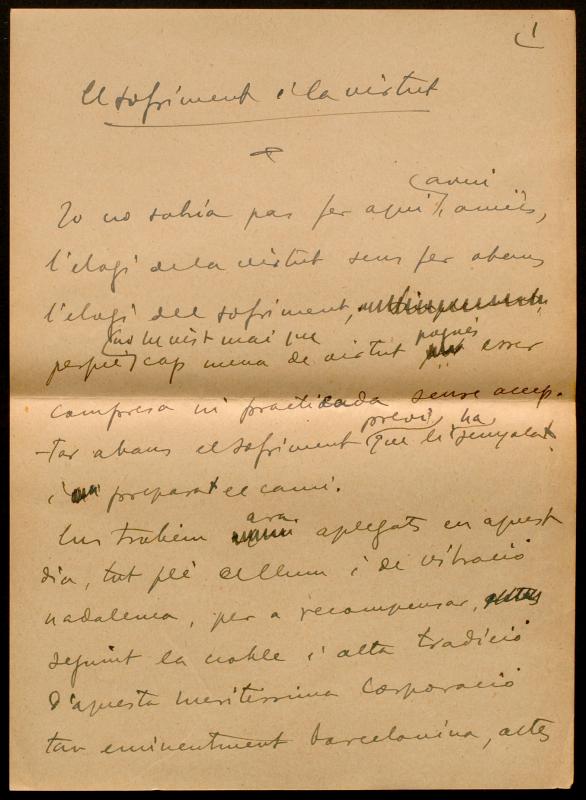 1
El sofriment i la virtut
avui
Jo no sabria pas fer aquí, amics,
l'elogi de la virtut sens fer abans
l'elogi del sofriment,
no he vist mai que
pogués
perquè cap mena de virtut esser
compresa ni practicada sense accep-
tar abans el sofriment
previ
ha
que li senyalat
i preparat el camí.
ara
Ens trobem aplegats en aquest
dia, tot ple de llum i de vibració
nadalenca, per a recompensar,
seguint la noble i alta tradició
d'aquesta meritíssima Corporació
tan eminentment barcelonina, actes